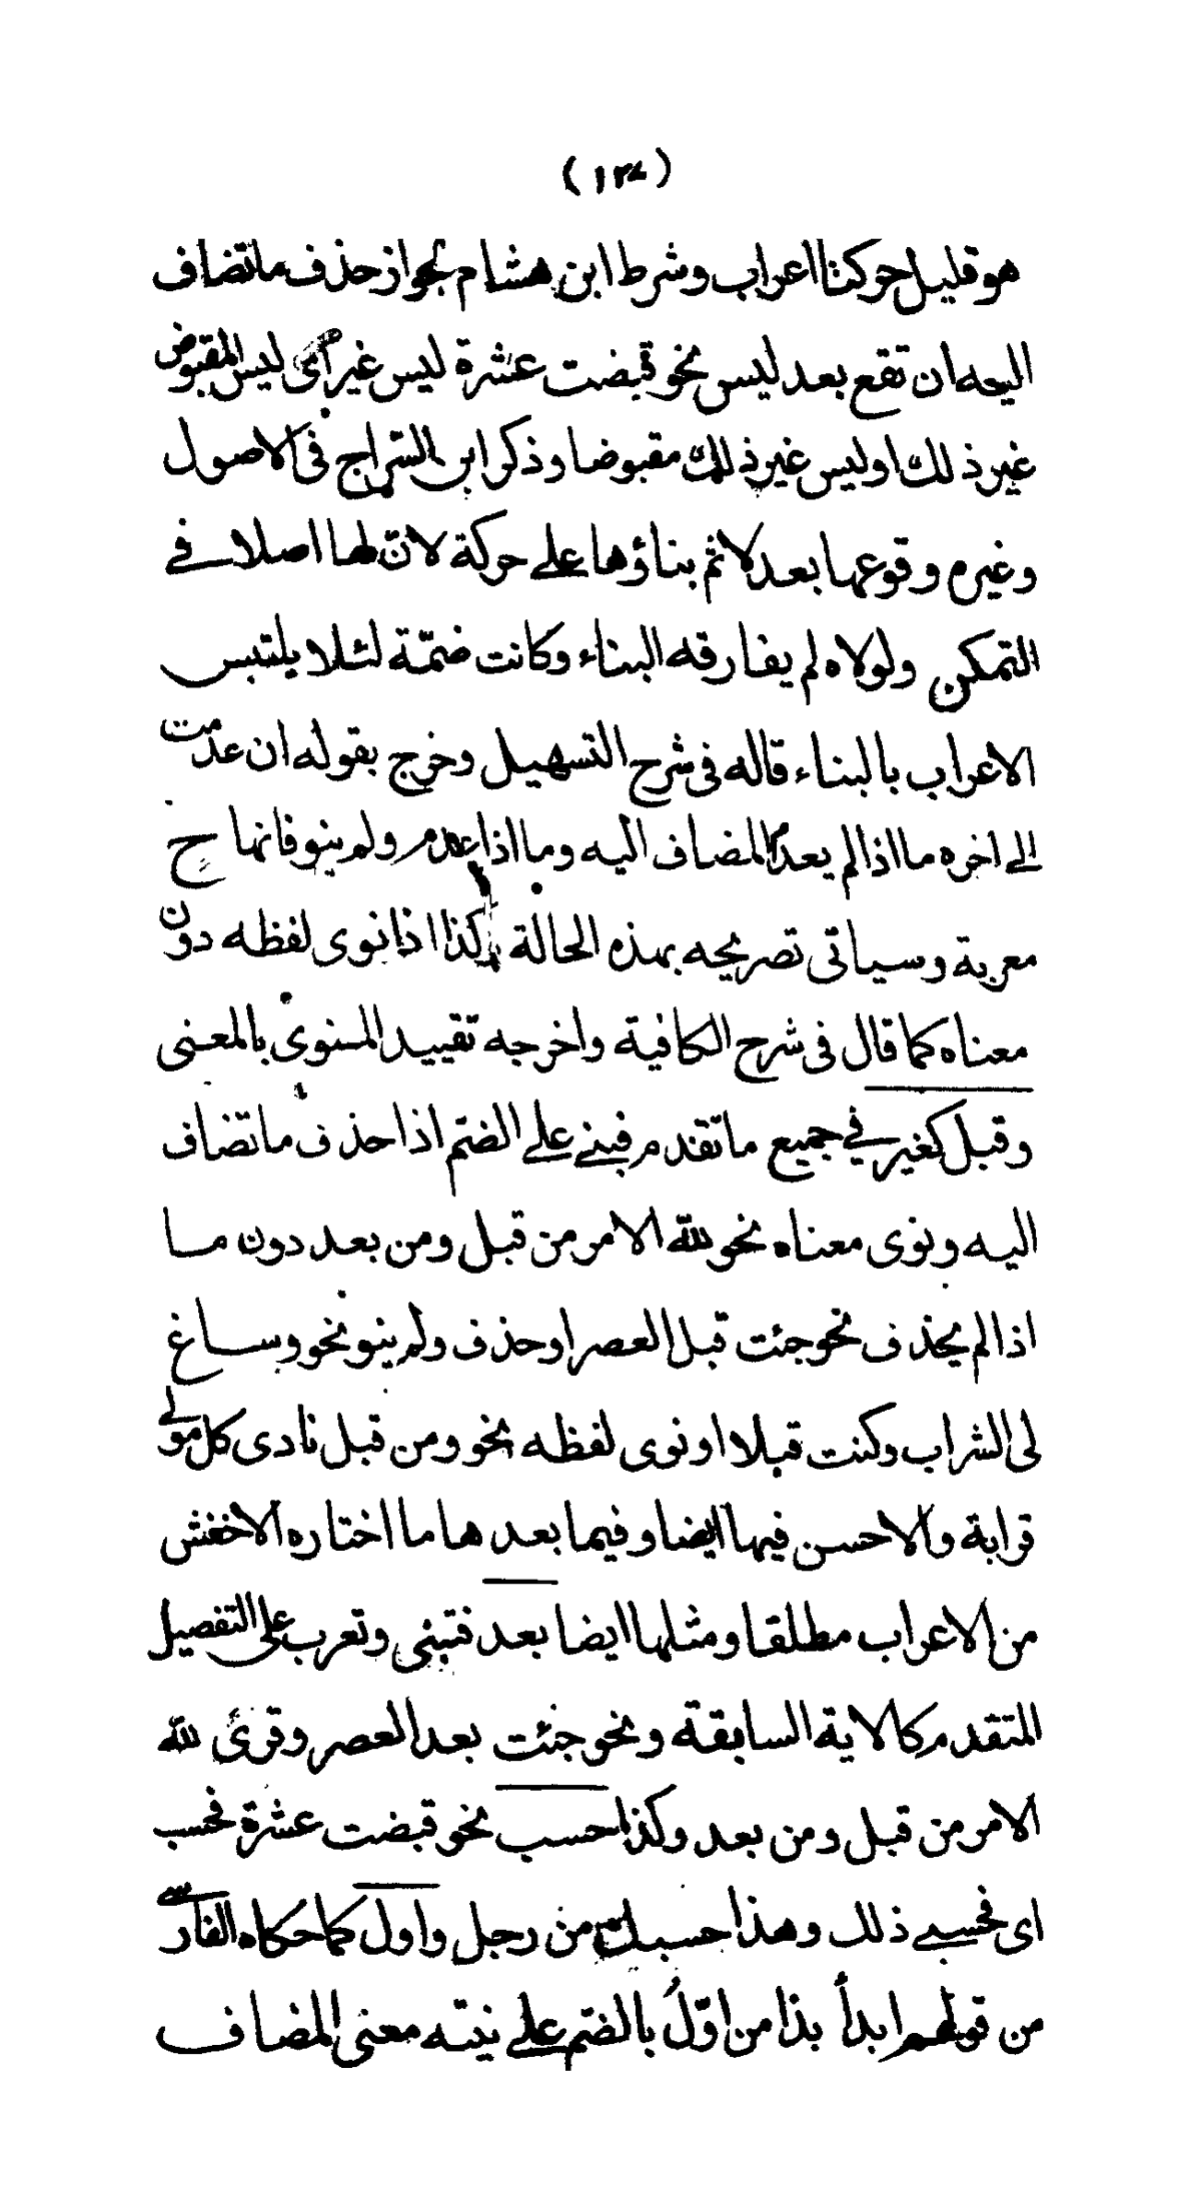 (١٣٤)
هو قليل حركتا اعراب وشرط ابن هشام لجواز حذف ما تضاف
اليه ان تقع بعد ليس نحو قبضت عشرة ليس غير اى ليس المقبوض
غير ذلك او ليس غير ذلك مقبوضا وذكر ابن السّراج فى الاصول
وغيره وقوعها بعد لا ثم بناؤها على حركة لانّ لها اصلا في
التمكن ولولاه لم يفارقه البناء وكانت ضمّة لئلا يلتبس
الاعراب بالبناء قاله فى شرح التسهيل وخرج بقوله ان عدمت
الى اخره ما اذا لم يعدم المضاف اليه وما اذا عدم ولم ينو فانها ح
معربة وسياتى تصريحه بهذه الحالة وكذا اذا نوى لفظه دون
معناه كما قال فى شرح الكافية واخرجه تقييد المنوى بالمعنى
وقبل كغير في جميع ما تقدم فبني على الضم اذا حذف ما تضاف
اليه ونوى معناه نحو لله الامر من قبل ومن بعد دون ما
اذا لم يحذف نحو جئت قبل العصر او حذف ولم ينو نحو وساغ
لى الشراب وكنت قبلا او نوى لفظه نحو ومن قبل نادى كل مولى
قرابة والاحسن فيها ايضا وفيما بعدها ما اختاره الاخفش
من الاعراب مطلقا ومثلها ايضا بعد فتبنى وتعرب على التفصيل
المتقدم كالاية السابقة ونحو جئت بعد العصر وقرئ لله
الامر من قبل ومن بعد وكذا حسب نحو قبضت عشرة فحسب
اى فحسبي ذلك وهذا حسبك من رجل واول كما حكاه الفارسي
من قولهم ابدأ بذا من اوّلُ بالضم على نيته معنى المضاف